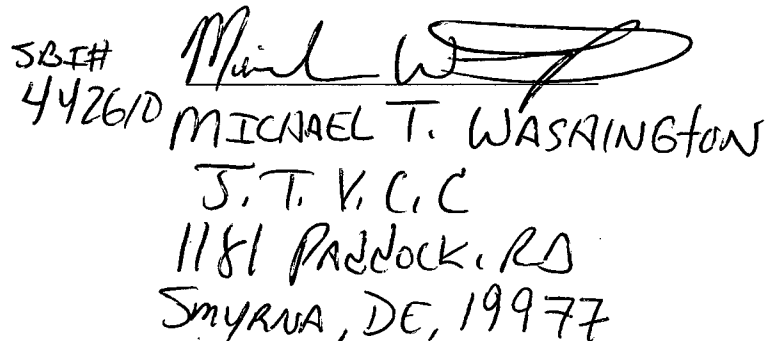 SBI#
442610
MICHAEL T. WASHINGTON
J.T.V.C.C
1181 PADDOCK. RD
SMYRNA, DE, 19977